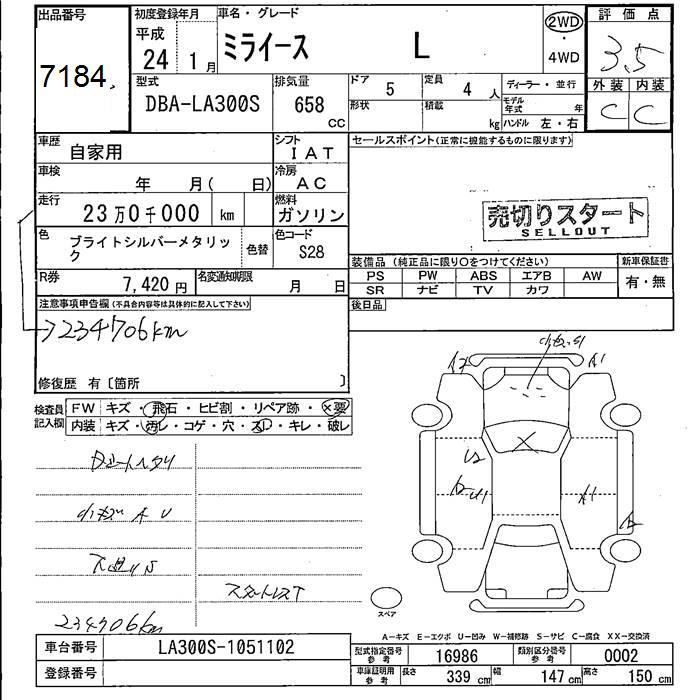 出品番号
7184
初度登録年月
平成
24 1月
車名・グレード
ミライース L
2WD
・
4WD
評価点
3.5
外装 内装
C C
型式
DBA-LA300S
排気量
658
CC
ドア 5
定員 4 人
形状
積載 kg
ディーラー・並行
モデル年式 年
ハンドル 左・右
車歴
自家用
シフト
IAT
セールスポイント(正常に機能するものに限ります)
車検
年 月( 日)
冷房
AC
走行
23万0千000 km
燃料
ガソリン
売切りスタート
SELLOUT
色
ブライトシルバーメタリック
色替
色コード
S28
装備品(純正品に限り○をつけてください)
新車保証書
PS PW ABS エアB AW
SR ナビ TV カワ
有・無
R券
7,420円
名変通知期限
月 日
後日品
注意事項申告欄(不具合内容等は具体的に記入して下さい)
→234706km
修復歴 有〔箇所 〕
検査員記入欄
FW キズ・飛石・ヒビ割・リペア跡・×要
内装 キズ・汚レ・コゲ・穴・スレ・キレ・破レ
小キズ A U
234706km
A2 A1
U2
A1
スペア
A−キズ E−エクボ U−凹み W−補修跡 S−サビ C−腐食 XX−交換済
車台番号
LA300S-1051102
登録番号
型式指定番号
参考
16986
類別区分番号
参考
0002
車庫証明用
参考
長さ 339 cm
幅 147 cm
高さ 150 cm